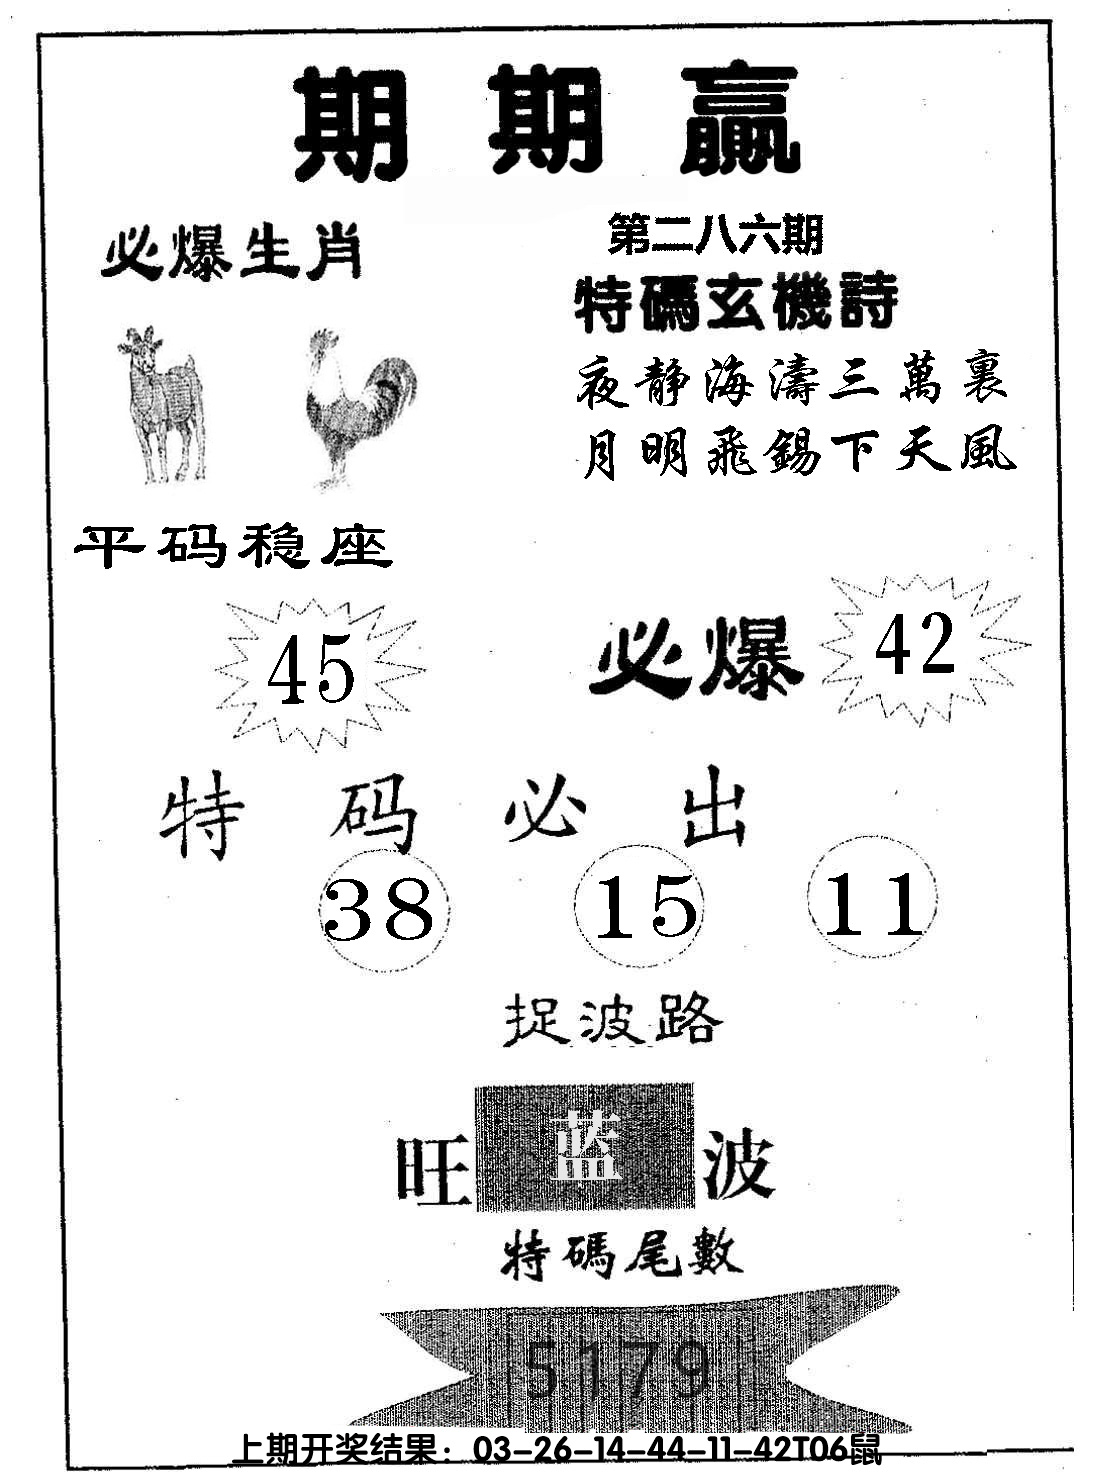 期期赢
必爆生肖
第二八六期
特碼玄機詩
夜静海濤三萬裏
月明飛錫下天風
平码稳座
45
必爆 42
特码必出
38 15 11
捉波路
旺 蓝 波
特碼尾數
5179
上期开奖结果：03-26-14-44-11-42T06鼠